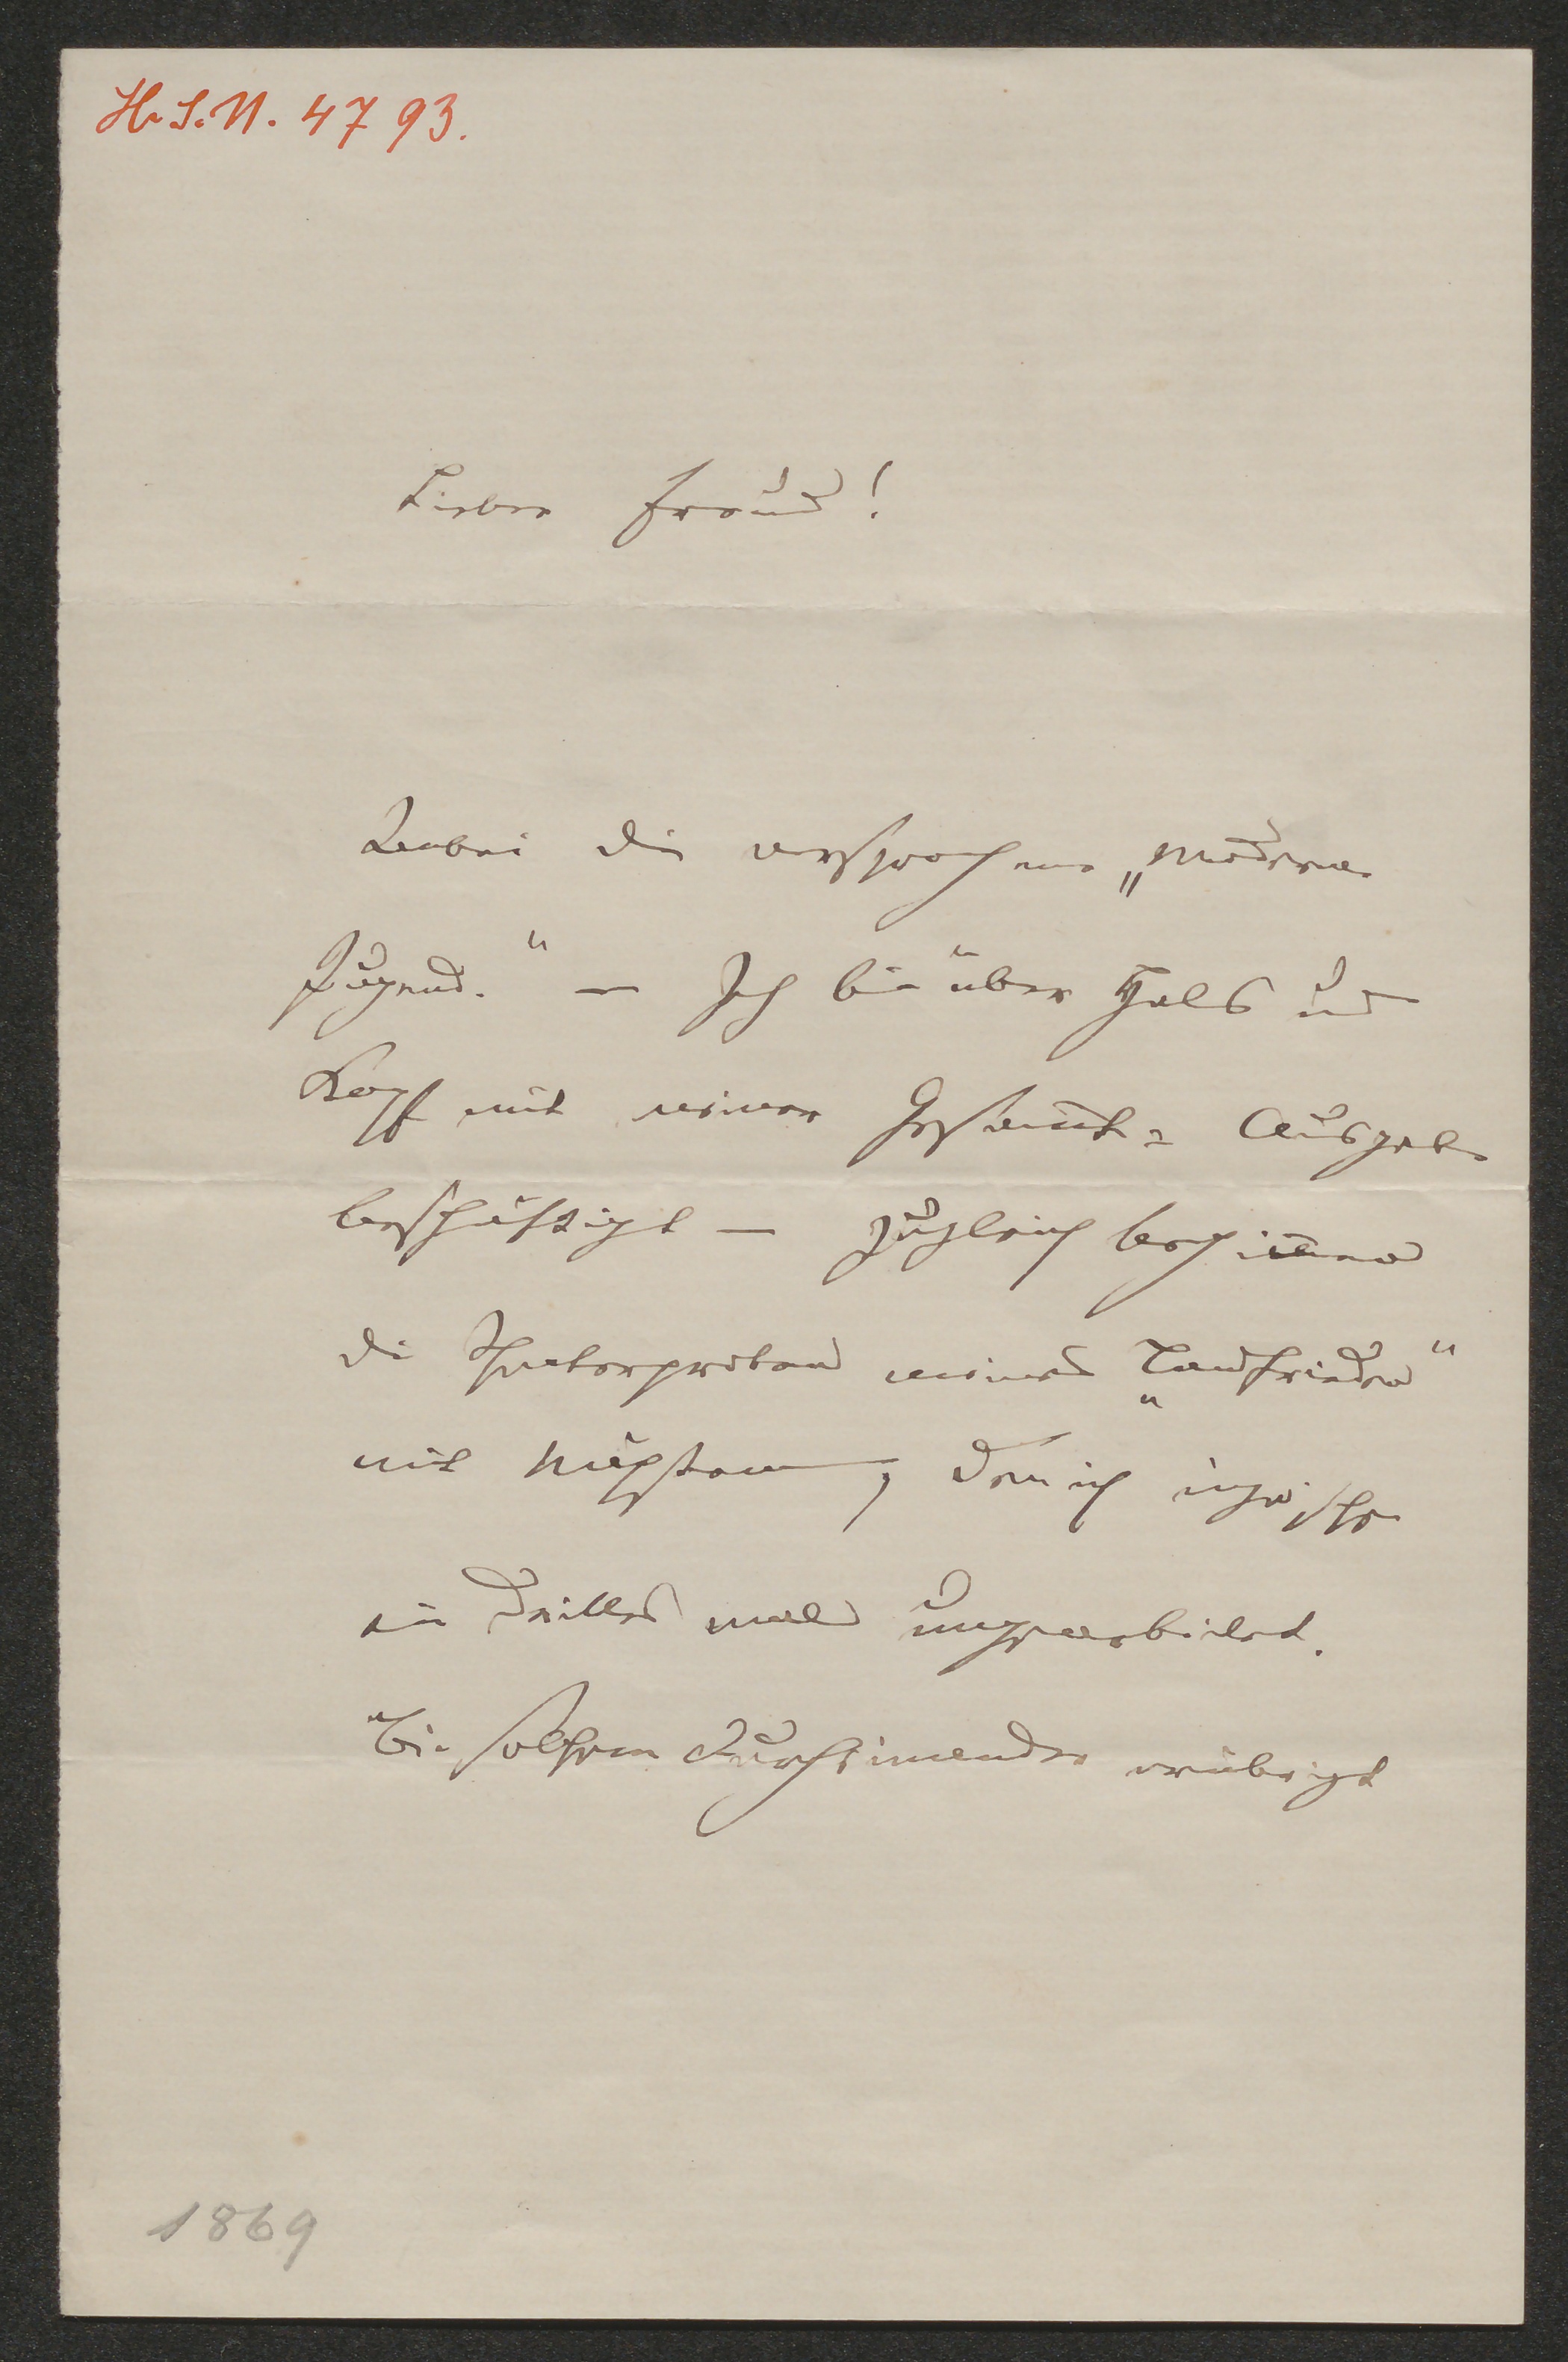 H. I. N. 4793.
Lieber Freund!
Anbei die versprochene „Moderne
Jugend.“ — Ich bin über Hals und
Kopf mit meiner Gesamt= Ausgabe
beschäftigt — zugleich beginnen
die Theaterproben meines „Landfrieden“
mit nächstem, den ich inzwischen
ein drittes mal umgearbeitet.
Bei solchem Durcheinander erübrigt
1869